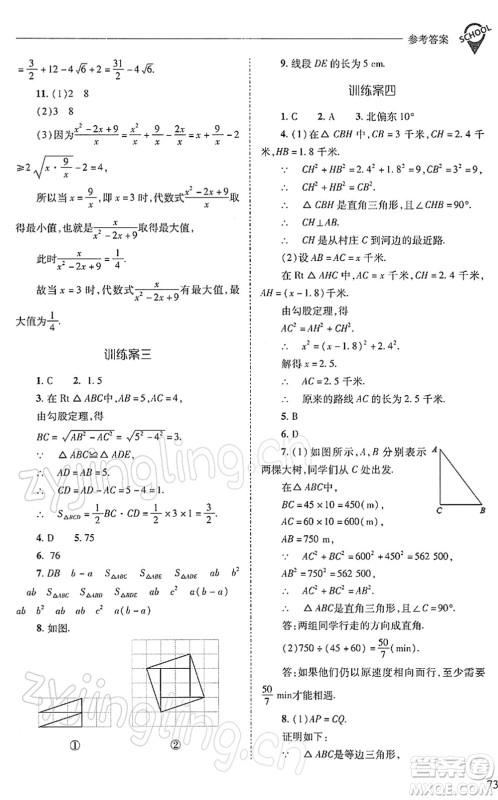 参考答案
SCHOOL
=3/2+12-4√6+2=31/2-4√6.
11. (1)2 8
(2)3 8
(3)因为(x²-2x+9)/x=x+9/x-2
≥2√(x·9/x)-2=4,
所以当x=9/x,即x=3时,代数式(x²-2x+9)/x
取得最小值,也就是x/(x²-2x+9)取得最大值,
此时x/(x²-2x+9)=1/4.
故当x=3时,代数式x/(x²-2x+9)取得最大值,最
大值为1/4.
训练案三
1. C 2. 1.5
3. 在Rt△ABC中,AB=5,AC=4,
由勾股定理,得
BC=√(AB²-AC²)=√(5²-4²)=3.
∵ △ABC≌△ADC,
∴ AD=AB=5.
∴ CD=AD-AC=5-4=1.
∴ S△BCD=1/2BC·CD=1/2×3×1=3/2.
4. D 5.75
6. 76
7. DB b-a S△ABC S△ABE S△ADE ab b²
ab S△ABC S△ABE S△ADE ab b²
ab a² ab a(b-a)
8. 如图.
① ②
9. 线段DE的长为5 cm.
训练案四
1. C 2. A 3. 北偏东10°
4. (1)在△CBH中,CB=3千米,CH=2.4千
米,HB=1.8千米.
∵ CH²+HB²=2.4²+1.8²=9=CB²,
∴ △CBH是直角三角形,且∠CHB=90°.
∴ CH⊥AB.
∴ CH是从村庄C到河边的最近路.
(2)设AC=x千米,
在Rt△AHC中,AC=x千米,CH=2.4千米,
AH=(x-1.8)千米.
由勾股定理,得
AC²=AH²+CH²,
∴ x²=(x-1.8)²+2.4².
解得x=2.5.
∴ 原来的路线AC的长为2.5千米.
5. B
6. D
7. (1)如图所示,A,B分别表示
两棵大树,同学们从C处出发.
在△ABC中,
BC=45×10=450(m),
AC=60×10=600(m),
AB=750 m,
∵ AC²+BC²=600²+450²=562 500,
AB²=750²=562 500,
∴ AC²+BC²=AB².
∴ △ABC是直角三角形,且∠ACB=90°.
答:两组同学行走的方向成直角.
(2)750÷(45+60)=50/7(min).
答:如果他们仍以原速度相向而行,需要经过
50/7 min才能相遇.
8. (1)AP=CQ.
证明如下:
∵ △ABC是等边三角形,
A
C
B
73
zyjingling.com